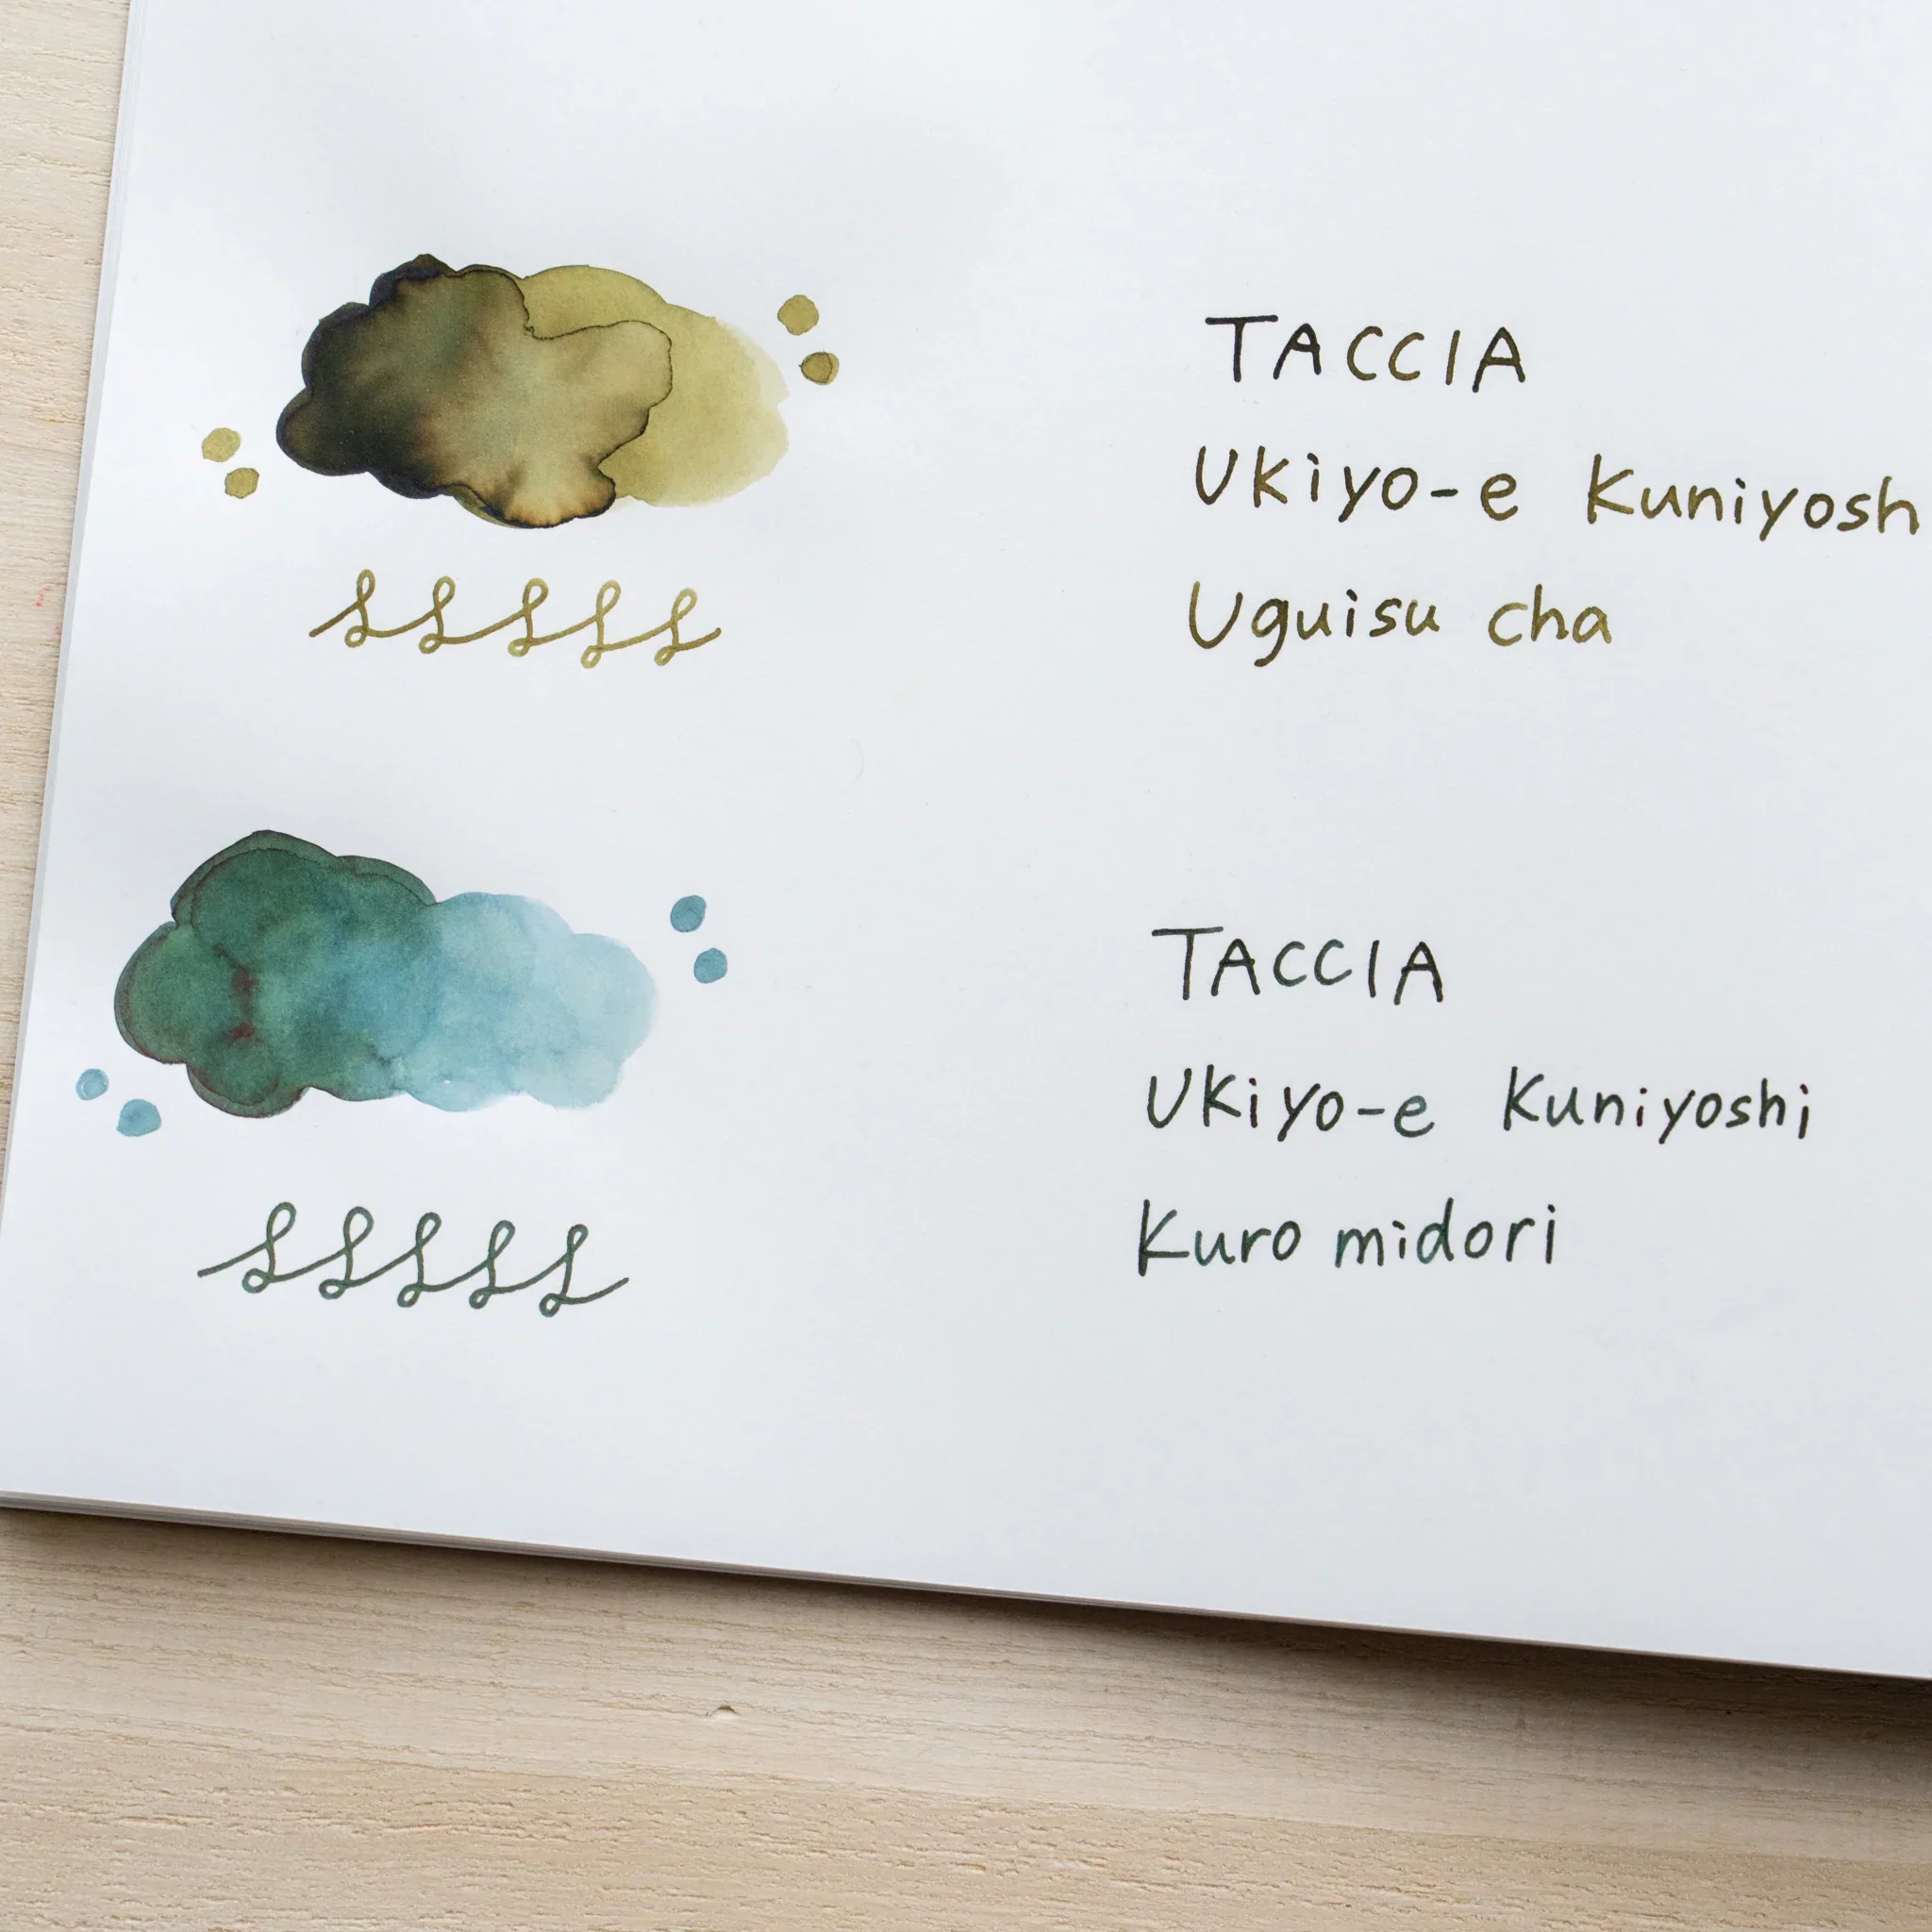 TACCIA
Ukiyo-e Kuniyosh
Uguisu cha
TACCIA
Ukiyo-e Kuniyoshi
Kuro midori